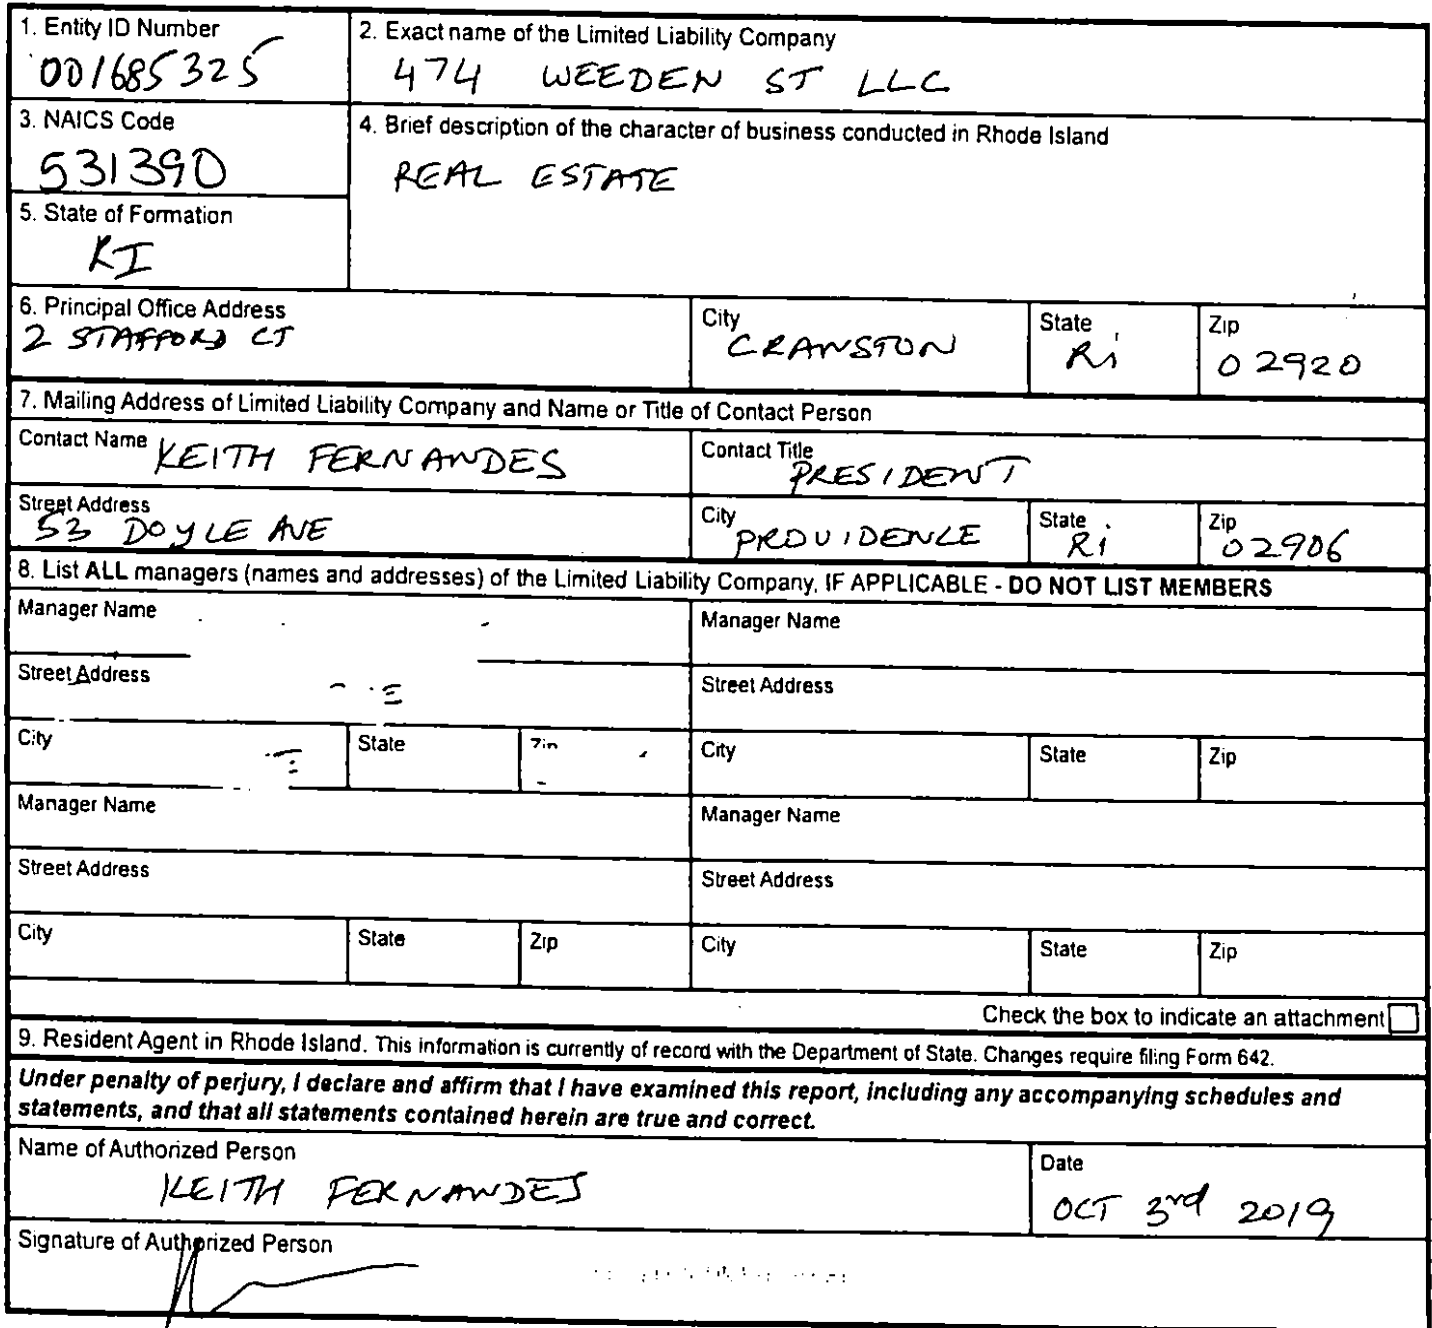 1. Entity ID Number
001685325
2. Exact name of the Limited Liability Company
474 WEEDEN ST LLC
3. NAICS Code
531390
4. Brief description of the character of business conducted in Rhode Island
REAL ESTATE
5. State of Formation
RI
6. Principal Office Address
2 STAFFORD CT
City
CRANSTON
State
Ri
Zip
02920
7. Mailing Address of Limited Liability Company and Name or Title of Contact Person
Contact Name KEITH FERNANDES
Contact Title
PRESIDENT
Street Address
53 DOYLE AVE
City
PROVIDENCE
State
Ri
Zip
02906
8. List ALL managers (names and addresses) of the Limited Liability Company, IF APPLICABLE - DO NOT LIST MEMBERS
Manager Name
Manager Name
Street Address
Street Address
City
State
Zip
City
State
Zip
Manager Name
Manager Name
Street Address
Street Address
City
State
Zip
City
State
Zip
Check the box to indicate an attachment
9. Resident Agent in Rhode Island. This information is currently of record with the Department of State. Changes require filing Form 642.
Under penalty of perjury, I declare and affirm that I have examined this report, including any accompanying schedules and
statements, and that all statements contained herein are true and correct.
Name of Authorized Person
KEITH FERNANDES
Date
OCT 3rd 2019
Signature of Authorized Person